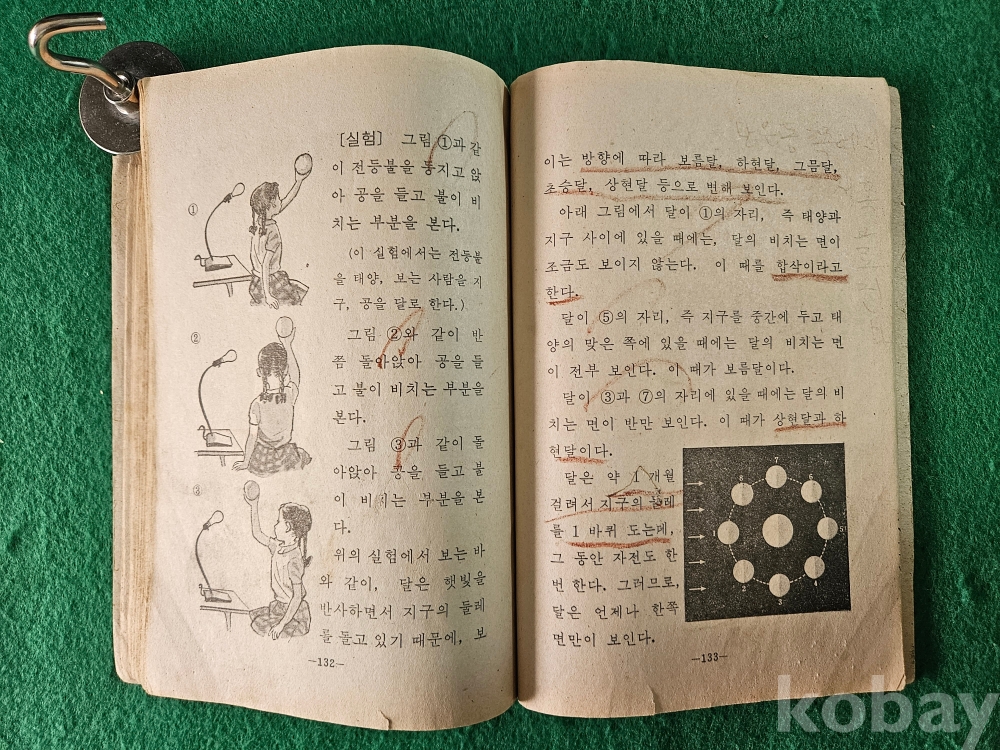 [실험] 그림 ①과 같
이 전등불을 등지고 앉
아 공을 들고 불이 비
치는 부분을 본다.
(이 실험에서는 전등불
을 태양, 보는 사람을 지
구, 공을 달로 한다.)
그림 ②와 같이 반
쯤 돌아앉아 공을 들
고 불이 비치는 부분을
본다.
그림 ③과 같이 돌
아앉아 공을 들고 불
이 비치는 부분을 본
다.
위의 실험에서 보는 바
와 같이, 달은 햇빛을
반사하면서 지구의 둘레
를 돌고 있기 때문에, 보
①
②
③
—132—
이는 방향에 따라 보름달, 하현달, 그믐달,
초승달, 상현달 등으로 변해 보인다.
아래 그림에서 달이 ①의 자리, 즉 태양과
지구 사이에 있을 때에는, 달의 비치는 면이
조금도 보이지 않는다. 이 때를 합삭이라고
한다.
달이 ⑤의 자리, 즉 지구를 중간에 두고 태
양의 맞은 쪽에 있을 때에는 달의 비치는 면
이 전부 보인다. 이 때가 보름달이다.
달이 ③과 ⑦의 자리에 있을 때에는 달의 비
치는 면이 반만 보인다. 이 때가 상현달과 하
현달이다.
달은 약 1 개월
걸려서 지구의 둘레
를 1 바퀴 도는데,
그 동안 자전도 한
번 한다. 그러므로,
달은 언제나 한쪽
면만이 보인다.
7
8
6
5
2
4
3
—133—
kobay